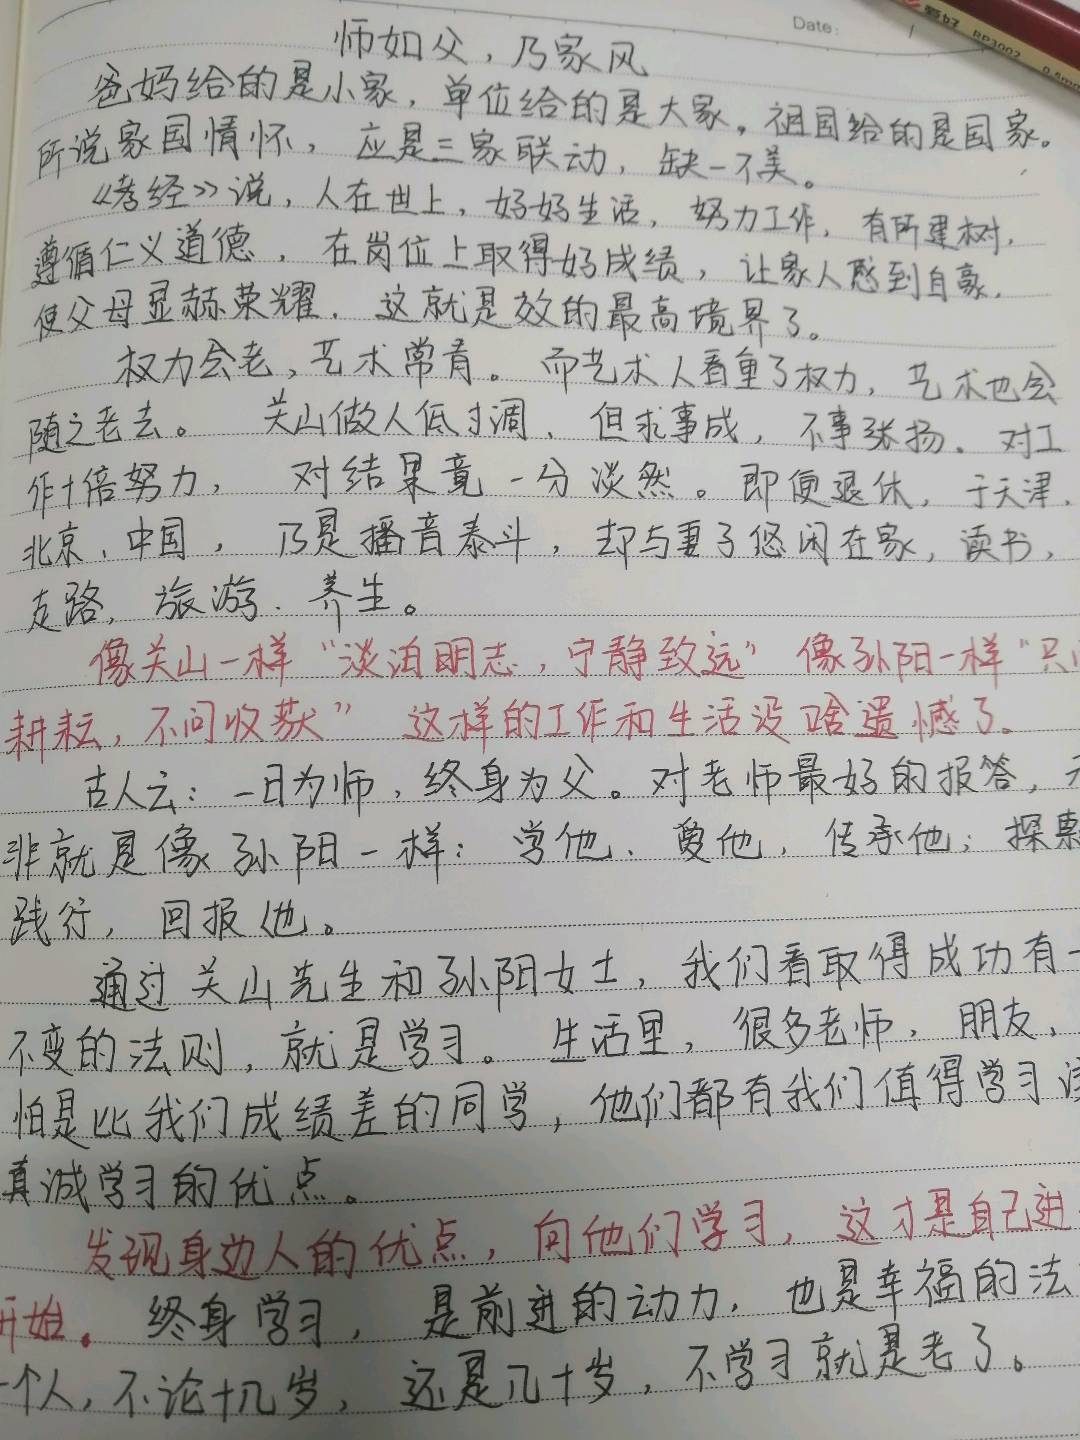 Date:
爱好 RP3002 0.5mm
师如父，乃家风
爸妈给的是小家，单位给的是大家。祖国给的是国家。
所说家国情怀，应是三家联动，缺一不美。
《孝经》说，人在世上，好好生活，努力工作，有所建树，
遵循仁义道德，在岗位上取得好成绩，让家人感到自豪，
使父母显赫荣耀，这就是效的最高境界了。
权力会老，艺术常青。而艺术人看重了权力，艺术也会
随之老去。关山做人低调、但求事成，不事张扬、对工
作十倍努力，对结果竟一分淡然。即便退休，于天津、
北京、中国，乃是播音泰斗，却与妻子悠闲在家，读书，
走路，旅游、养生。
像关山一样“淡泊明志，宁静致远”像孙阳一样“只
耕耘，不问收获”这样的工作和生活没啥遗憾了。
古人云：一日为师，终身为父。对老师最好的报答，
非就是像孙阳一样：学他、爱他，传承他；探
践行，回报他。
通过关山先生和孙阳女士，我们看取得成功有一
不变的法则，就是学习。生活里，很多老师，朋友，
怕是比我们成绩差的同学，他们都有我们值得学习
真诚学习的优点。
发现身边人的优点，向他们学习，这才是自己进
开始。终身学习，是前进的动力，也是幸福的法
一个人，不论十几岁，还是几十岁，不学习就是老了。